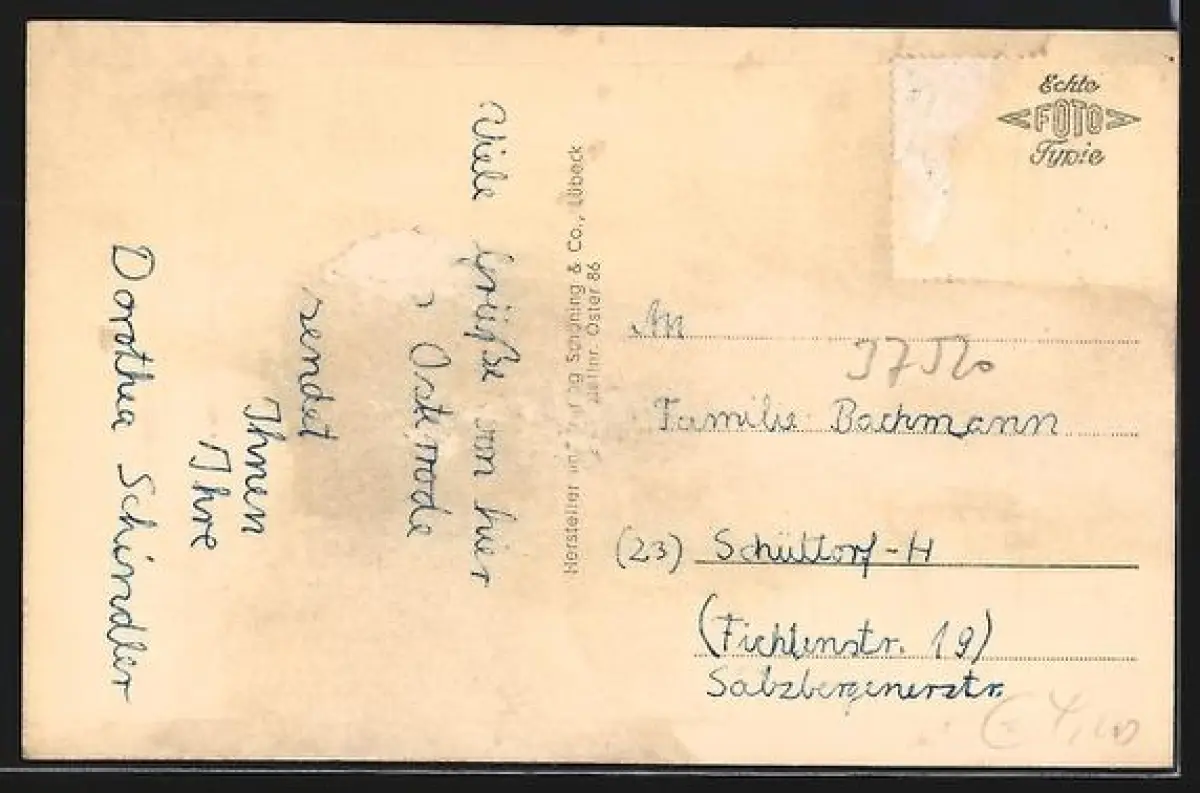 Viele Grüße von hier
Osterode
sendet
Ihnen
Ihre
Dorothea Schindler
Hersteller und Verlag Schöning & Co., Lübeck
Oster 86
Echte
FOTO
Typie
An
37520
Familie Bachmann
(23) Schüttorf-H
(Fichtenstr. 19)
Salzbergenerstr.